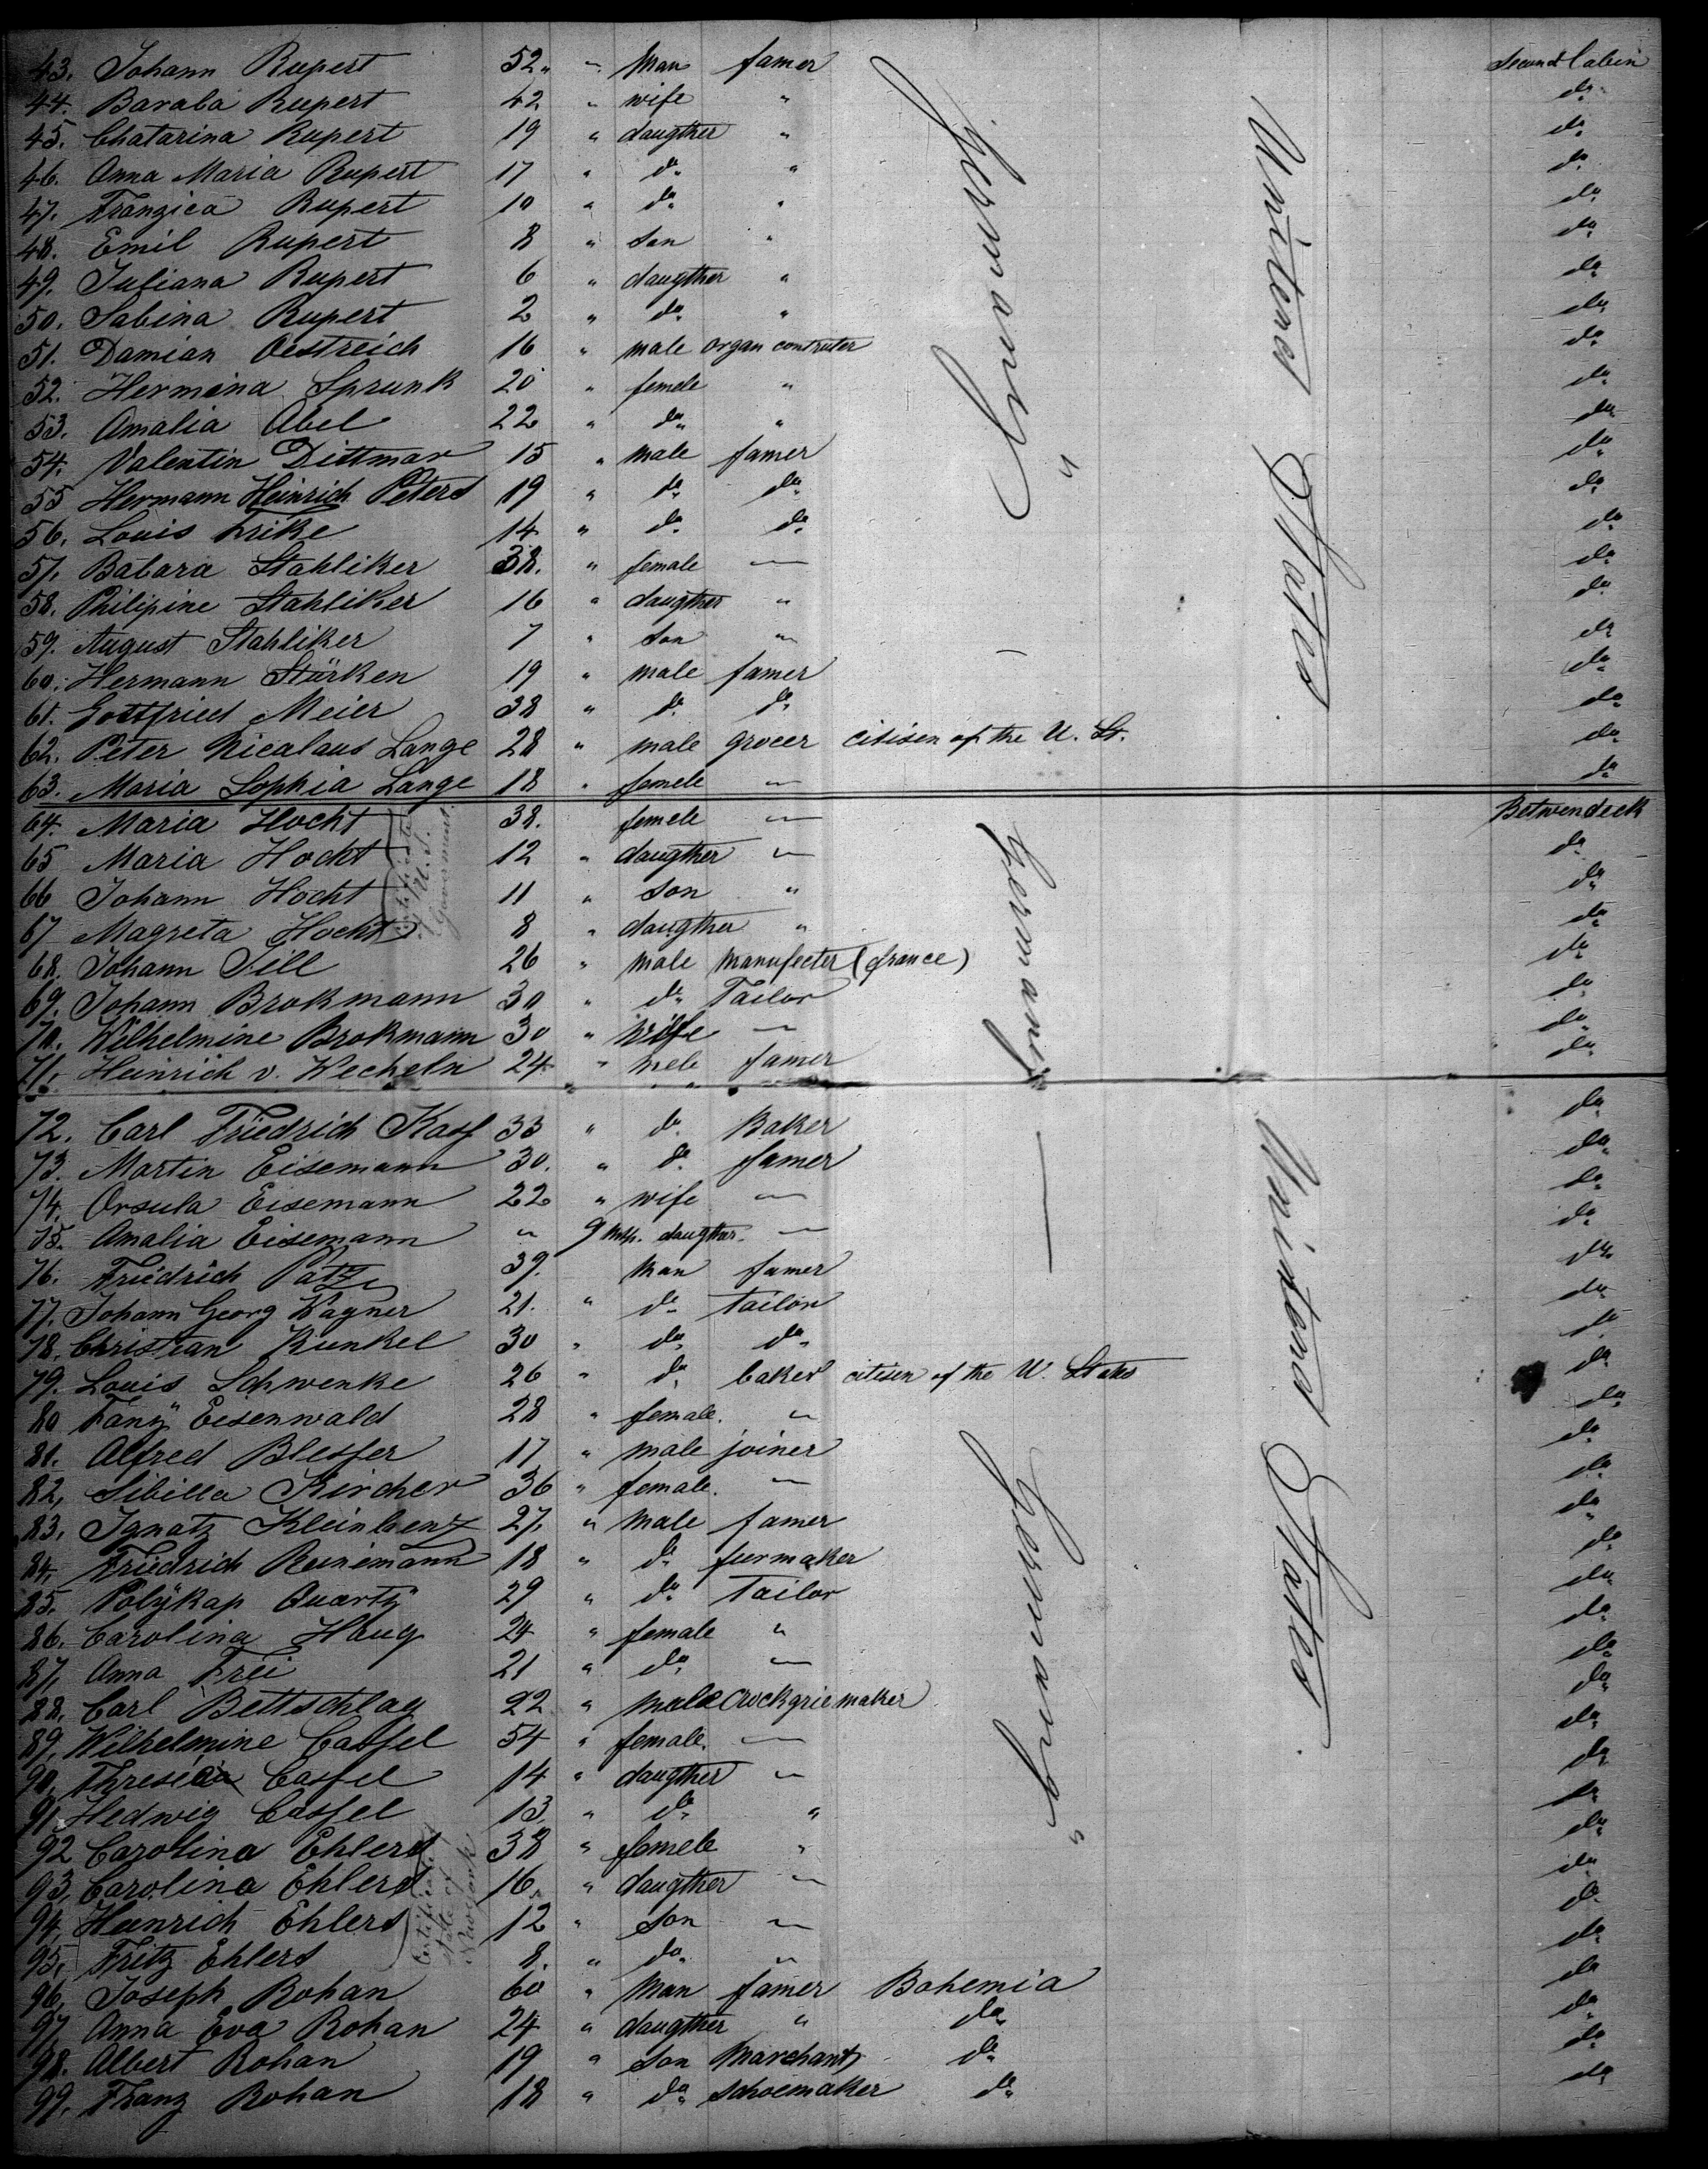 43. Johann Rupert 52 " Man famer Second Cabin
44. Baraba Rupert 42 " wife " do
45. Chatarina Rupert 19 " daugther " do
46. Anna Maria Rupert 17 " do " do
47. Franzica Rupert 10 " do " do
48. Emil Rupert 8 " son " do
49. Juliana Rupert 6 " daugther " do
50. Sabina Rupert 2 " do " do
51. Damian Oestreich 16 " male organ contruter do
52. Hermina Sprunk 20 " femele " do
53. Amalia Abel 22 " do " do
54. Valentin Dittmar 15 " male famer do
55 Hermann Heinrich Peters 19 " do do do
56. Louis Frike 14 " do do do
57. Babara Stahliker 38. " female — do
58. Philipine Stahliker 16 " daugther " do
59. August Stahliker 7 " son " do
60. Hermann Stürken 19 " male famer do
61. Gottfried Meier 38 " do do do
62. Peter Nicalaus Lange 28 " male grocer citisen of the U. St. do
63. Maria Sophia Lange 18 " femele — do
Germany.
United States
64. Maria Hocht 38. femele — Betwendeck
65 Maria Hocht 12 " daugther — do
66 Johann Hocht 11 " son " do
67 Magreta Hocht 8 " daugther " do
68. Johann Till 26 " male manufecter (france) do
69. Johann Brokmann 30 " do Tailor do
70. Wilhelmine Brokmann 30 " wife — do
71. Heinrich v. Wecheln 24 " mele famer do
Germany
72. Carl Friedrich Kass 33 " do Baker do
73. Martin Eisemann 30. " do famer do
74. Orsula Eisemann 22 " wife — do
75. Amalia Eisemann " 9 daugther — do
76. Friedrich Patz 39. man famer do
77. Johann Georg Wagner 21. " do tailor do
78. Christian Kunkel 30 " do do do
79. Louis Schwenke 26 " do baker citisen of the U. States do
80 Fany Eisenwald 28 " female. — do
81. Alfred Blesser 17 " male joiner do
82, Sibilla Kircher 36 " female. — do
83. Ignatz Kleinhenz 27. " male famer do
84. Friedrich Reinemann 18 " do furmaker do
85. Polykap Quarty 29 " do Tailor do
86. Carolina Haug 24 " female " do
87, Anna Frei 21 " do — do
88. Carl Bettschlag 22 " male do
89, Wilhelmine Cassel 54 " female. — do
90, Cassel 14 " daugther — do
91 Hedwig Cassel 13, " do " do
92 Carolina Ehlers 38 " femele " do
93, Carolina Ehlers 16. " daugther — do
94, Heinrich Ehlers 12 " son — do
95, Fritz Ehlers 8. " do " do
96, Joseph Rohan 60 " Man famer Bohemia do
97, Anna Eva Rohan 24 " daugther " do do
98. Albert Rohan 19 " son Marchant do do
99. Franz Rohan 18 " do schoemaker do do
Germany
United States